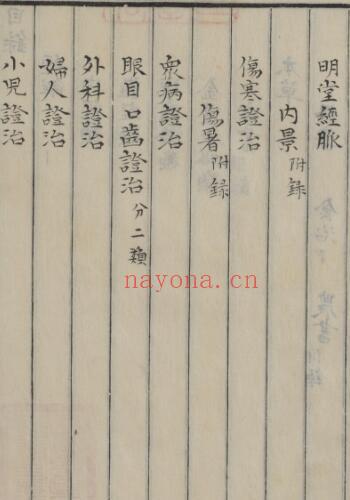 明堂經脈
內景附録
傷寒證治
傷暑附録
衆病證治
眼目口齒證治分二類
外科證治
婦人證治
小兒證治
nayona.cn